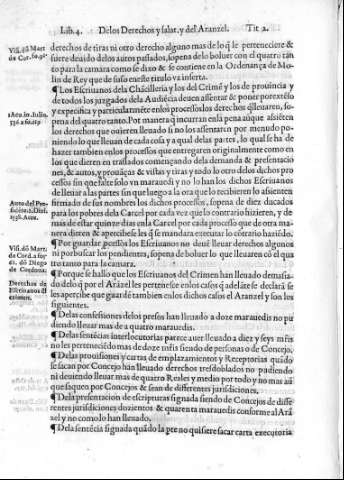 Lib. 4. Delos Derechos y salar. y del Aranzel. Tit 2.
derechos de tiras ni otro derecho alguno mas de lo q̃ le pertenesciere &
fuere deuido delos autos passados, sopena delo boluer con el quatro tan
to para la camara como se dixo & se contiene en la Ordenança de Mo-
lin de Rey que de suso eneste titulo va inserta.
¶ Los Escriuanos dela Chãcilleria y los del Crimẽ y los de prouincia y
de todos los juzgados dela Audiẽcia deuen assentar & poner por extẽso
y expecifica y particularmẽte enlos processos los derechos q̃ lleuaren, so-
pena del quatro tanto. Por manera q̃ incurran enla pena aũque assiẽten
los derechos que ouieren lleuado si no los assentaren por menudo po-
niendo lo que lleuan de cada cosa y a qual delas partes, lo qual se ha de
hazer tambien enlos processos que entregaren originalmente como en
los que dieren en traslados començando dela demanda & presentacio
nes, & autos, y prouãças & vistas y tiras y todo lo otro delos dichos pro
cessos sin que falte solo vn marauedi y no lo han los dichos Escriuanos
de lleuar a las partes sin que luego a la ora que lo recibieren lo assienten
firmado de sus nombres los dichos processos, sopena de diez ducados
para los pobres dela Carcel por cada vez que lo contrario hizieren, y de
mas de estar quinze dias enla Carcel por cada processo que de otra ma-
nera dieren & apercibeseles q̃ se mandara executar lo cõtrario haziẽdo.
¶ Por guardar processos los Escriuanos no deuẽ lleuar derechos algunos
ni por buscar los pendientes, sopena de boluer lo que lleuaren cõ el qua
tro tanto para la camara.
¶ Porque se hallo que los Escriuanos del Crimen han lleuado demasia-
do delo q̃ por el Arãzel les pertenesce enlos casos q̃ adelãte se declarã se
les apercibe que guardẽ tambien enlos dichos casos el Aranzel y son los
siguientes.
¶ Delas confessiones delos presos han lleuado a doze marauedis no pu
diendo lleuar mas de a quatro marauedis.
¶ Delas sentẽcias interlocutorias parece auer lleuado a diez y seys mr̃s
no les pertenesciẽdo mas de doze mr̃s siendo de personas o de Concejo.
¶ Delas prouisiones y carta de emplazamientos y Receptorias quãdo
se sacan por Concejo han lleuado derechos tresdoblados no pudiendo
ni deuiendo lleuar mas de quatro Reales y medio por todo y no mas aũ
que saquen por Concejos & sean de differentes jurisdiciones.
¶ Dela presentacion de escripturas signada siendo de Concejos de diffe
rentes jurisdiciones dozientos & quarenta marauedis conforme al Arã
zel y no como lo han lleuado.
¶ Dela sentẽcia signada quãdo la parte no quisiere sacar carta executoria
Visi. dõ Mart.
de Cor. fo.96.
Auto del Pre-
sidẽte
1538. Auto.
Visi. dõ Mart.
de Cord. a fo-
dõ Diego
de Cordoua.
Derechos de
Escriuanos d̃l
crimen.